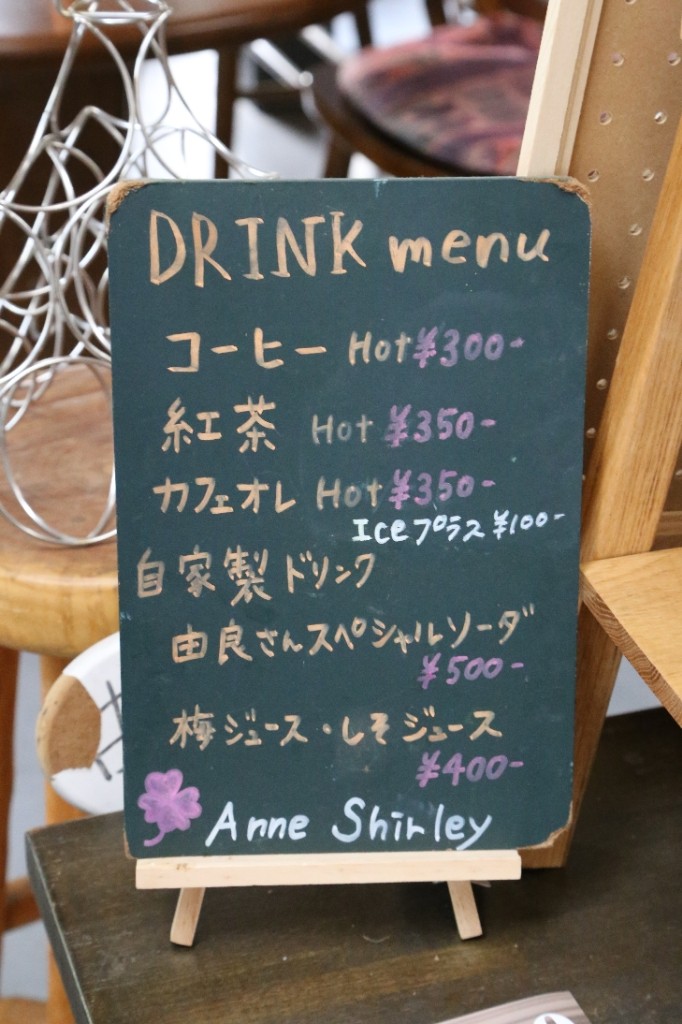 DRINK menu
コーヒー Hot ¥300-
紅茶 Hot ¥350-
カフェオレ Hot ¥350-
Iceプラス ¥100-
自家製ドリンク
由良さんスペシャルソーダ
¥500-
梅ジュース・しそジュース
¥400-
Anne Shirley